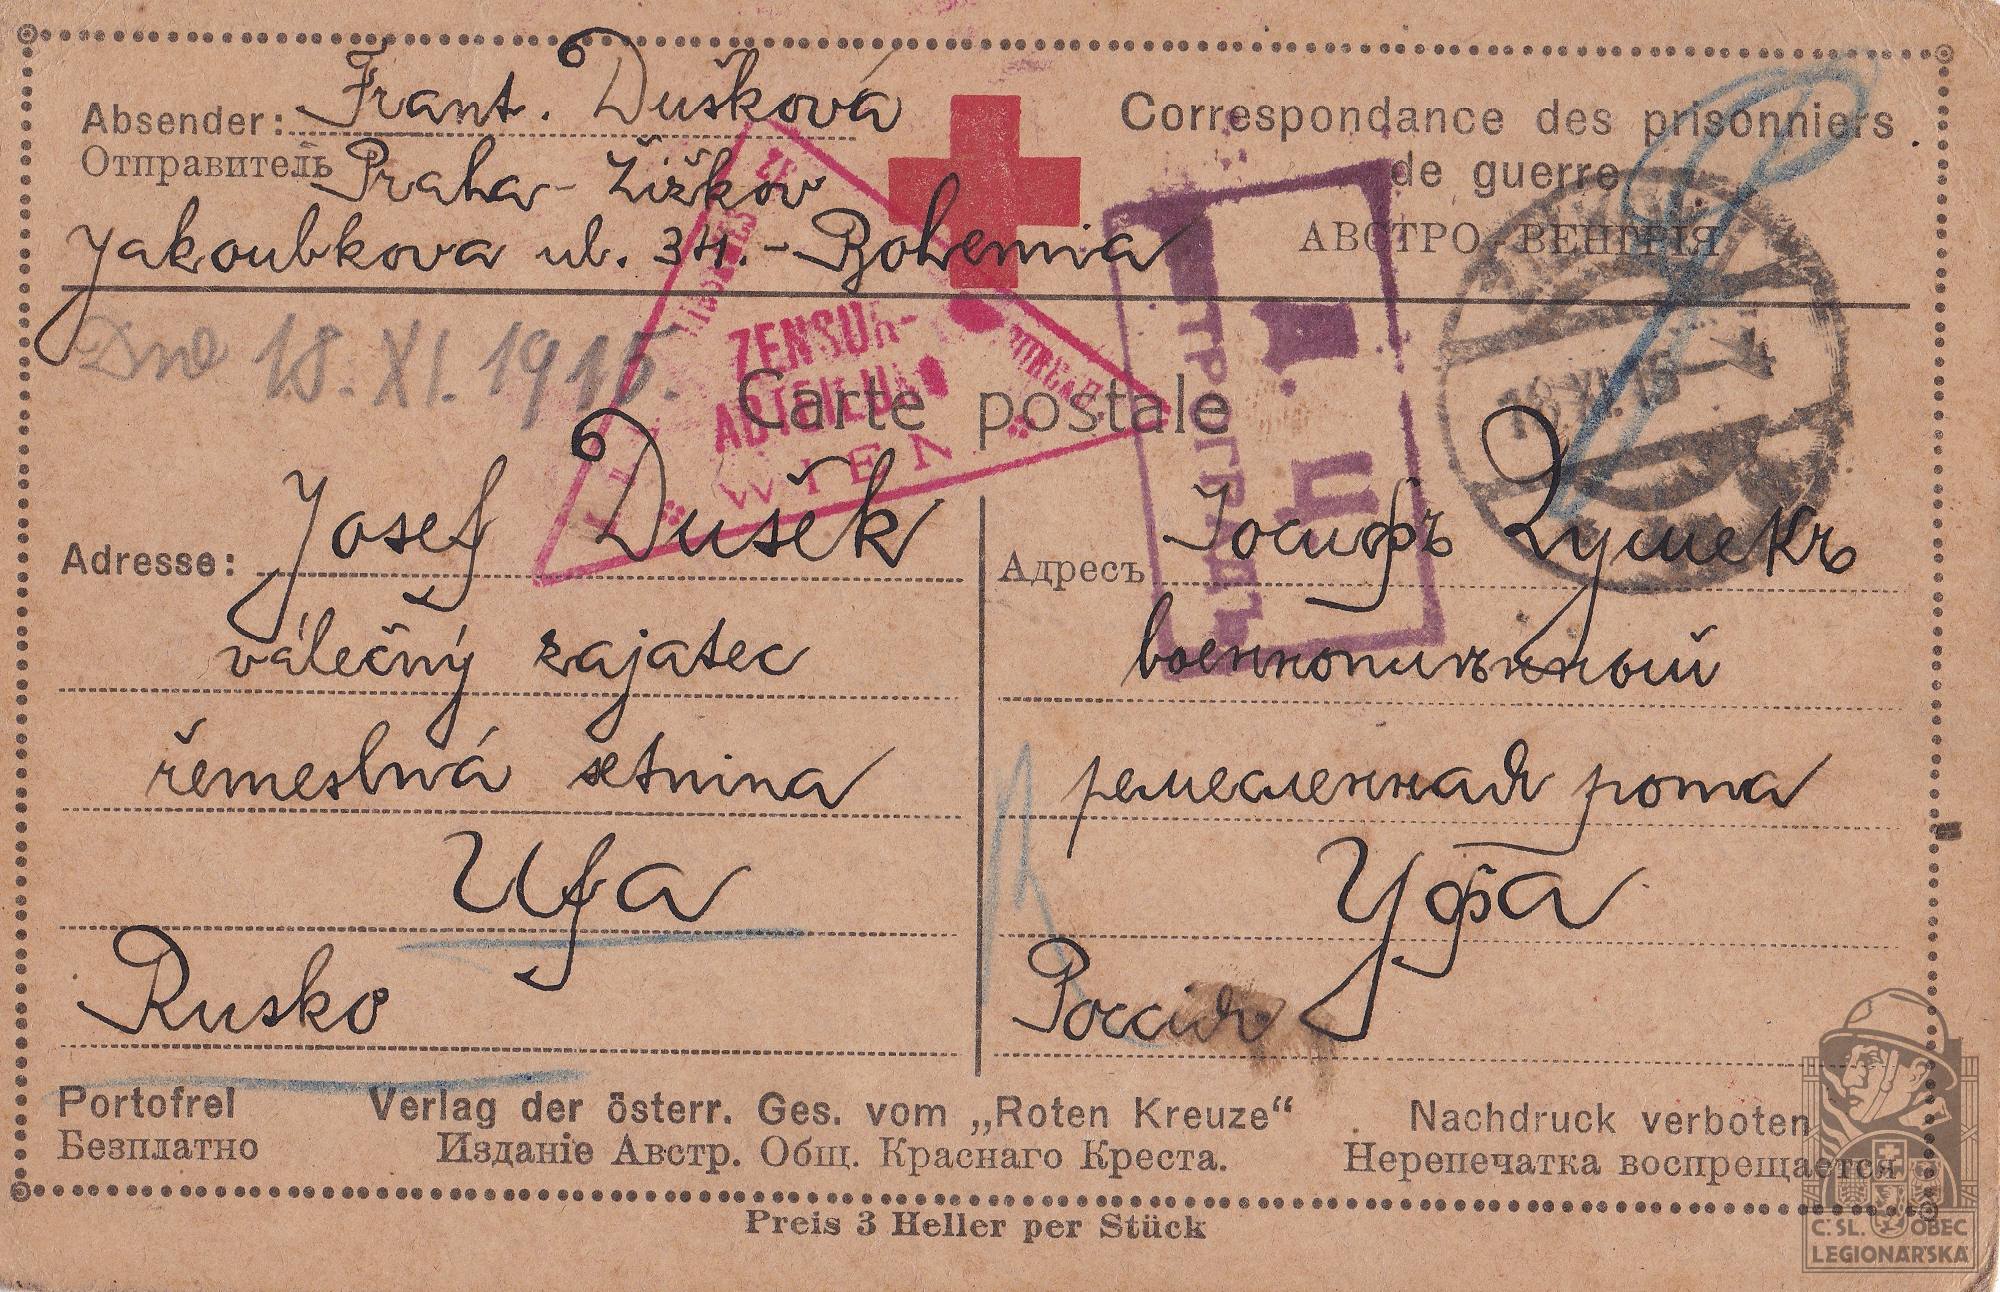 Absender: Frant. Dušková
Отправитель Praha - Žižkov
Jakoubkova ul. 34. - Bohemia
Correspondance des prisonniers
de guerre
АВСТРО-ВЕНГРІЯ
Dne 18. XI. 1915.
ZENSUR-
ABTEILUNG
WIEN
ПЕТРОГРАДЪ
Ц.
18 XI 15
Carte postale
Adresse: Josef Dušek
válečný zajatec
řemeslná setnina
Ufa
Rusko
Адресъ Іосифъ Душекъ
военноплѣнный
ремесленная рота
Уфа
Россія
Portofrei Verlag der österr. Ges. vom „Roten Kreuze“ Nachdruck verboten
Безплатно Изданіе Австр. Общ. Краснаго Креста. Нерепечатка воспрещается
Preis 3 Heller per Stück
Č.SL. OBEC
LEGIONÁŘSKÁ